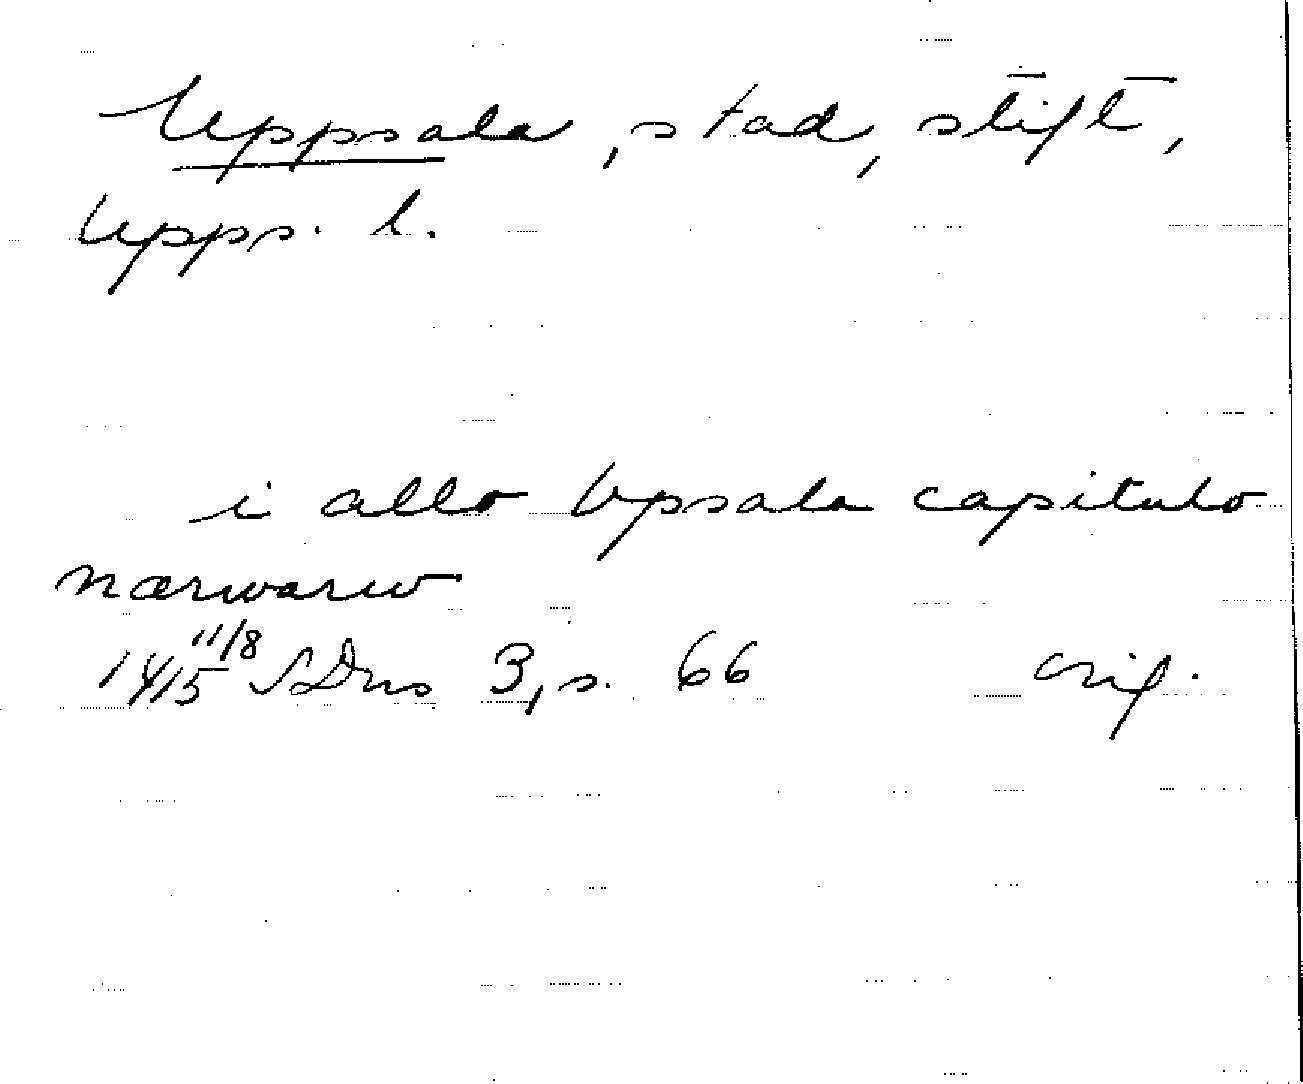 Uppsala, stad, stift,
Upps. l.
i allo Vpsala capitulo
nærwarw
1415 11/8 SDns 3, s. 66 orig.